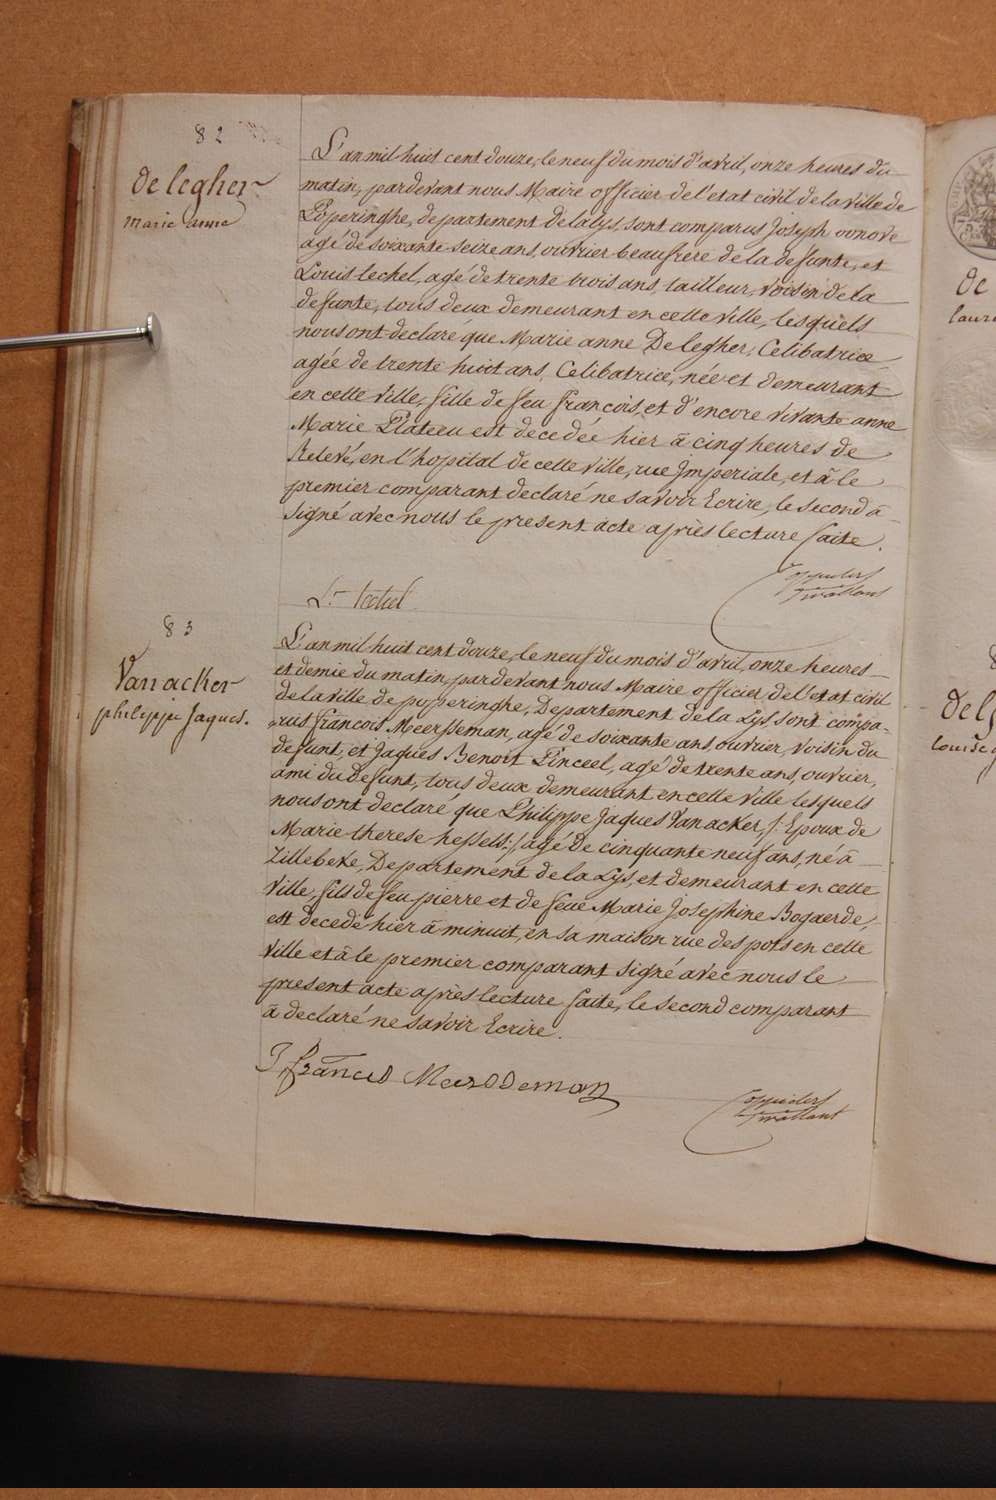 82
de legher
marie anne
L'an mil huit cent douze, le neuf du mois d'avril, onze heures du
matin, pardevant nous Maire officier de l'etat civil de la ville de
Poperinghe, departement de la lys, sont comparus Joseph
agé de soixante seize ans, ouvrier beaufrere de la defunte, et
Louis lechel, agé de trente trois ans, tailleur, voisin de la
defunte, tous deux demeurant en cette ville, lesquels
nous ont declaré que Marie anne De legher, Celibatrice
agée de trente huit ans, Celibatrice, née et demeurant
en cette ville, fille de feu francois, et d'encore vivante anne
Marie Plateeu est decedée hier à cinq heures de
Relevé, en l'hopital de cette ville, rue Imperiale, et à le
premier comparant declaré ne savoir Ecrire, le second à
signé avec nous le present acte après lecture faite.
83
Van acker
philippe Jaques.
L'an mil huit cent douze, le neuf du mois d'avril, onze heures
et demie du matin, pardevant nous Maire officier de l'etat civil
de la ville de popperinghe, Departement de la Lys sont compa-
rus francois Meersseman, agé de soixante ans, ouvrier, Voisin du
defunt, et Jaques Benoit Pinceel, agé de trente ans, ouvrier,
ami du defunt, tous deux demeurant en cette ville lesquels
nous ont declaré que Philippe Jaques Van acker, /: Epoux de
Marie therese hessels :/ agé de cinquante neuf ans, né à
Zillebeke, Departement de la Lys, et demeurant en cette
ville, fils de feu pierre et de feue Marie Josephine Bogaerde,
est decedé hier à minuit, en sa maison rue des pots en cette
ville et à le premier comparant signé avec nous le
present acte après lecture faite, le second comparant
à declaré ne savoir Ecrire.
francis Meersseman
de
del
louise